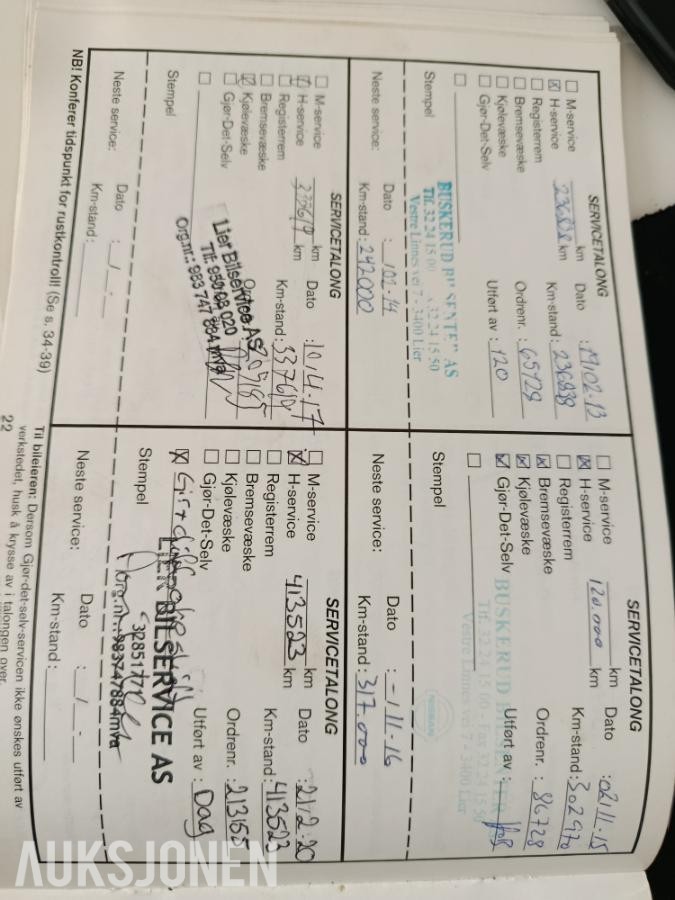 SERVICETALONG
M-service km Dato : 19/02-13
H-service 236838 km Km-stand : 236838
Registerrem Ordrenr. : 65129
Bremsevæske Utført av : 120
Kjølevæske
Gjør-Det-Selv
BUSKERUD AS
Tlf. 32 24 15 00 32 24 15 50
Vestre Linnes vei 7 - 3400 Lier
Stempel
Neste service: Dato : /02-14
Km-stand : 242000
SERVICETALONG
M-service km Dato : 02/11-15
H-service 120.000 km Km-stand : 302970
Registerrem Ordrenr. : 86728
Bremsevæske Utført av :
Kjølevæske
Gjør-Det-Selv
BUSKERUD
Tlf. 32 24 15 00 - Fax 32 24 15 50
Vestre Linnes vei 7 - 3400 Lier
Stempel
Neste service: Dato : -/11-16
Km-stand : 317.000
SERVICETALONG
M-service km Dato : 10/4-17
H-service km Km-stand :
Registerrem
Bremsevæske
Kjølevæske
Gjør-Det-Selv
Lier Bilservice AS
Tlf: 950 08 020
Org.nr.: 983 747 884 mva
Stempel
Neste service: Dato : / -
Km-stand :
SERVICETALONG
M-service km Dato : 21/2-20
H-service 413523 km Km-stand : 413523
Registerrem Ordrenr. : 213155
Bremsevæske Utført av : Dag
Kjølevæske
Gjør-Det-Selv
LIER BILSERVICE AS
Org.nr.: 983747884mva
Stempel
Neste service: Dato : / -
Km-stand :
NB! Konferer tidspunkt for rustkontroll! (Se s. 34-39)
Til bileieren: Dersom Gjør-det-selv-servicen ikke ønskes utført av
verkstedet, husk å krysse av i talongen over.
22
AUKSJONEN